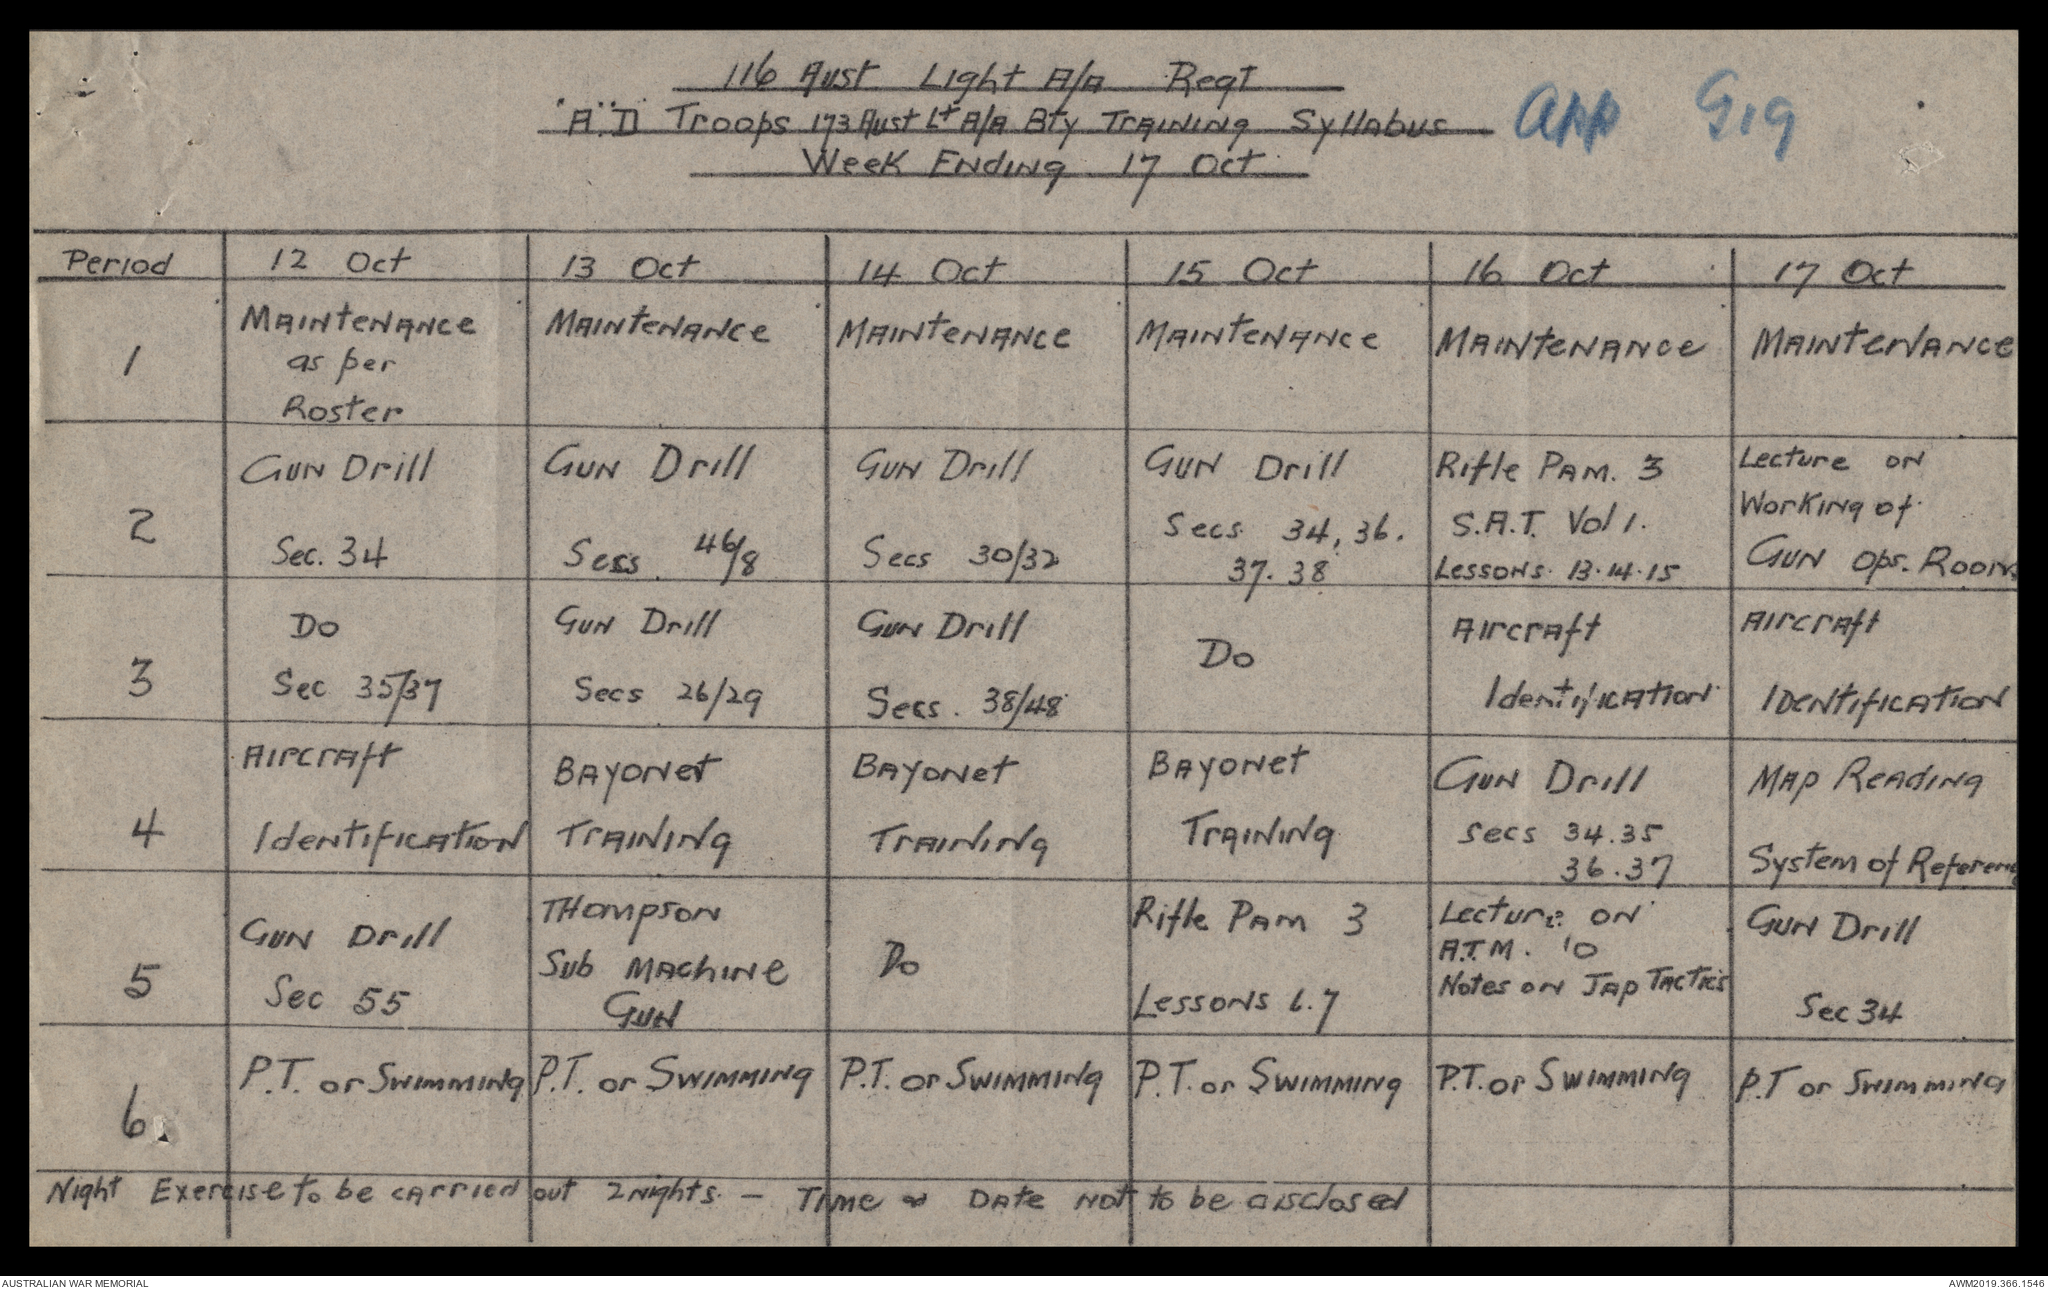 116 Aust Light A/A Regt
"A" "D" Troops 173 Aust Lt A/A Bty Training Syllabus App G19
Week Ending 17 Oct
Period 12 Oct 13 Oct 14 Oct 15 Oct 16 Oct 17 Oct
1 Maintenance as per Roster Maintenance Maintenance Maintenance Maintenance Maintenance
2 Gun Drill Sec. 34 Gun Drill Secs. 46/8 Gun Drill Secs 30/32 Gun Drill Secs 34, 36. 37. 38 Rifle Pam. 3 S.A.T. Vol 1. Lessons. 13.14.15 Lecture on Working of Gun Ops. Room
3 Do Sec 35/37 Gun Drill Secs 26/29 Gun Drill Secs. 38/48 Do Aircraft Identification Aircraft Identification
4 Aircraft Identification Bayonet Training Bayonet Training Bayonet Training Gun Drill Secs 34.35 36.37 Map Reading System of Referenc
5 Gun Drill Sec 55 Thompson Sub Machine Gun Do Rifle Pam 3 Lessons 6.7 Lecture on A.T.M. 10 Notes on Jap Tactics Gun Drill Sec 34
6. P.T. or Swimming P.T. or Swimming P.T. or Swimming P.T. or Swimming P.T. or Swimming P.T or Swimming
Night Exercise to be carried out 2 nights. - Time & Date not to be disclosed
AUSTRALIAN WAR MEMORIAL AWM2019.366.1546